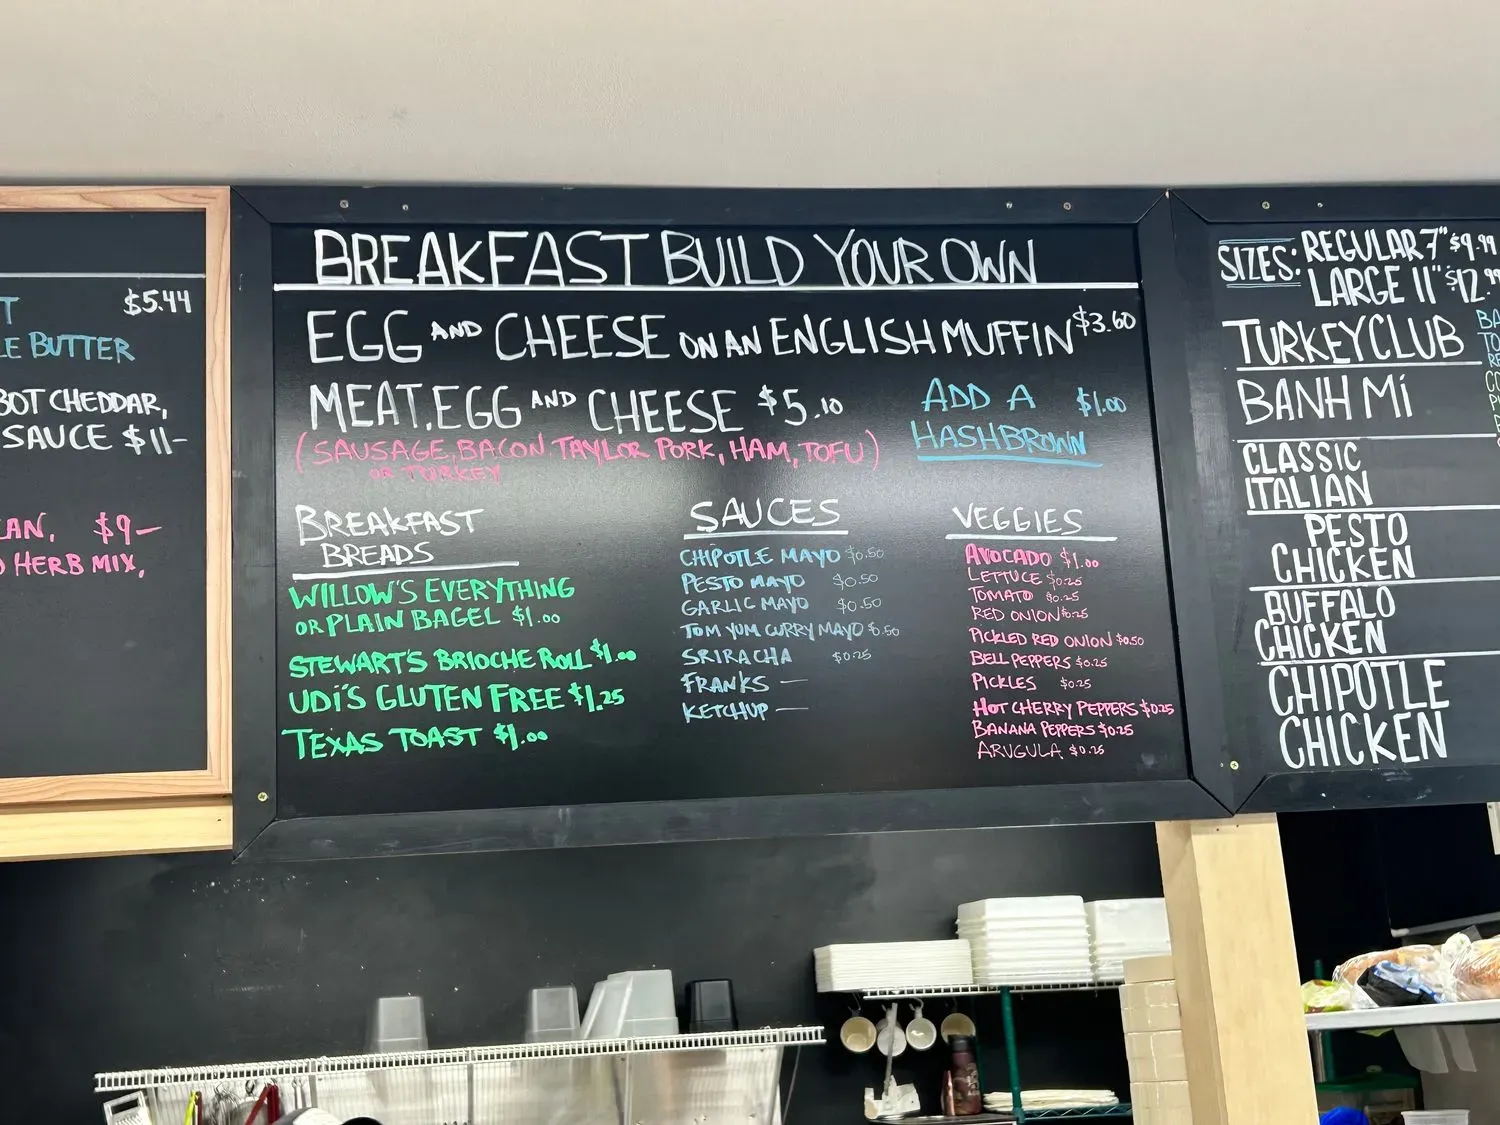 $5.44
BUTTER
CHEDDAR,
SAUCE $11-
$9-
HERB MIX,
BREAKFAST BUILD YOUR OWN
EGG AND CHEESE ON AN ENGLISH MUFFIN $3.60
MEAT, EGG AND CHEESE $5.10
(SAUSAGE, BACON TAYLOR PORK, HAM, TOFU)
OR TURKEY
ADD A $1.00
HASHBROWN
BREAKFAST
BREADS
WILLOW'S EVERYTHING
OR PLAIN BAGEL $1.00
STEWART'S BRIOCHE ROLL $1.00
UDI'S GLUTEN FREE $1.25
TEXAS TOAST $1.00
SAUCES
CHIPOTLE MAYO $0.50
PESTO MAYO $0.50
GARLIC MAYO $0.50
TOM YUM CURRY MAYO $0.50
SRIRACHA $0.25
FRANKS —
KETCHUP —
VEGGIES
AVOCADO $1.00
LETTUCE $0.25
TOMATO $0.25
RED ONION $0.25
PICKLED RED ONION $0.50
BELL PEPPERS $0.25
PICKLES $0.25
HOT CHERRY PEPPERS $0.25
BANANA PEPPERS $0.25
ARUGULA $0.25
SIZES: REGULAR 7" $9.99
LARGE 11" $12.99
TURKEY CLUB
BANH Mi
CLASSIC
ITALIAN
PESTO
CHICKEN
BUFFALO
CHICKEN
CHIPOTLE
CHICKEN